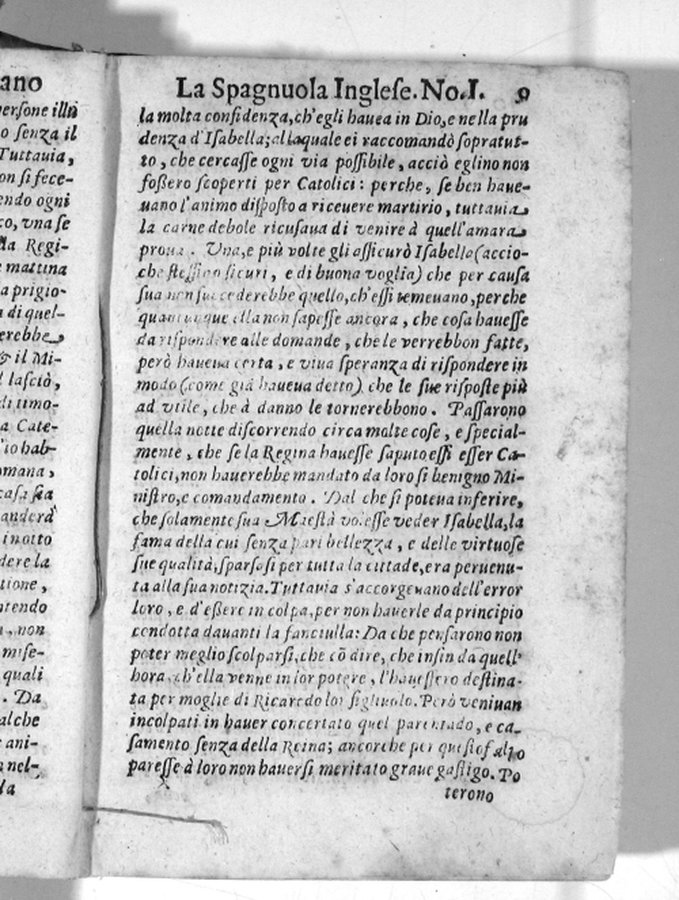 ano
persone illu
o senza il
Tuttauia,
on si fece-
endo ogni
co, vna se
lla Regi-
e mattina
a prigio-
a di quel-
erebbe,
& il Mi-
l lasciò,
di timo-
a Cate-
'io hab-
omana,
casa sta
anderà
in otto
dere la
tione,
ntendo
, non
mise-
quali
. Da
alche
ani-
nel-
la
La Spagnuola Inglese. No. I. 9
la molta confidenza, ch'egli hauea in Dio, e nella pru
denza d'Isabella; alla quale ei raccomandò sopratut-
to, che cercasse ogni via possibile, acciò eglino non
foßero scoperti per Catolici: perche, se ben haue-
uano l'animo disposto a riceuere martirio, tuttauia
la carne debole ricusaua di venire à quell'amara
proua. Vna, e più volte gli assicurò Isabella (accio-
che stessino sicuri, e di buona voglia) che per causa
sua non succederebbe quello, ch'essi temeuano, perche
quantunque ella non sapesse ancora, che cosa hauesse
da rispondere alle domande, che le verrebbon fatte,
però haueua certa, e viua speranza di rispondere in
modo (come già haueua detto) che le sue risposte più
ad vtile, che à danno le tornerebbono. Passarono
quella notte discorrendo circa molte cose, e special-
mente, che se la Regina hauesse saputo essi esser Ca-
tolici, non hauerebbe mandato da loro si benigno Mi-
nistro, e comandamento. Dal che si poteua inferire,
che solamente sua Maestà volesse veder Isabella, la
fama della cui senza pari bellezza, e delle virtuose
sue qualità, sparsosi per tutta la cittade, era peruenu-
ta alla sua notizia. Tuttauia s'accorgeuano dell'error
loro, e d'eßere in colpa, per non hauerle da principio
condotta dauanti la fanciulla: Da che pensarono non
poter meglio scolparsi, che cō dire, che insin da quell'
hora, ch'ella venne in lor potere, l'haueßero destina-
ta per moglie di Ricaredo lor figliuolo. Però veniuan
incolpati in hauer concertato quel parentado, e ca-
samento senza della Reina; ancorche per questo fallo
paresse à loro non hauersi meritato graue gastigo. Po
terono